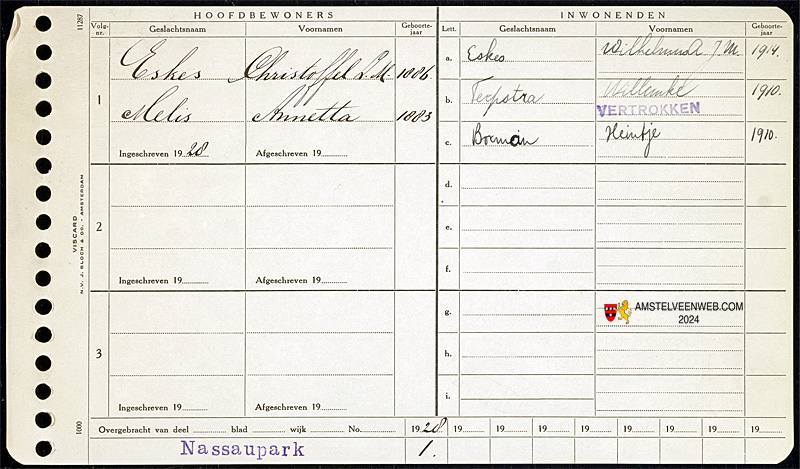 HOOFDBEWONERS
Volg-nr. Geslachtsnaam Voornamen Geboorte-jaar
1
Eskes Christoffel L.M. 1886.
Melis Annetta 1883
Ingeschreven 1928 Afgeschreven 19
2
Ingeschreven 19 Afgeschreven 19
3
Ingeschreven 19 Afgeschreven 19
INWONENDEN
Lett. Geslachtsnaam Voornamen Geboorte-jaar
a. Eskes Wilhelmina J.M. 1914.
b. Terpstra Willemke 1910.
VERTROKKEN
c. Borman Heintje 1910.
d.
e.
f.
g.
h.
i.
AMSTELVEENWEB.COM
2024
Overgebracht van deel blad wijk No. 1928 19 19 19 19 19 19 19 19
Nassaupark 1.
11287
VISCARD
N.V. J. BLOCH & CO. - AMSTERDAM
1000